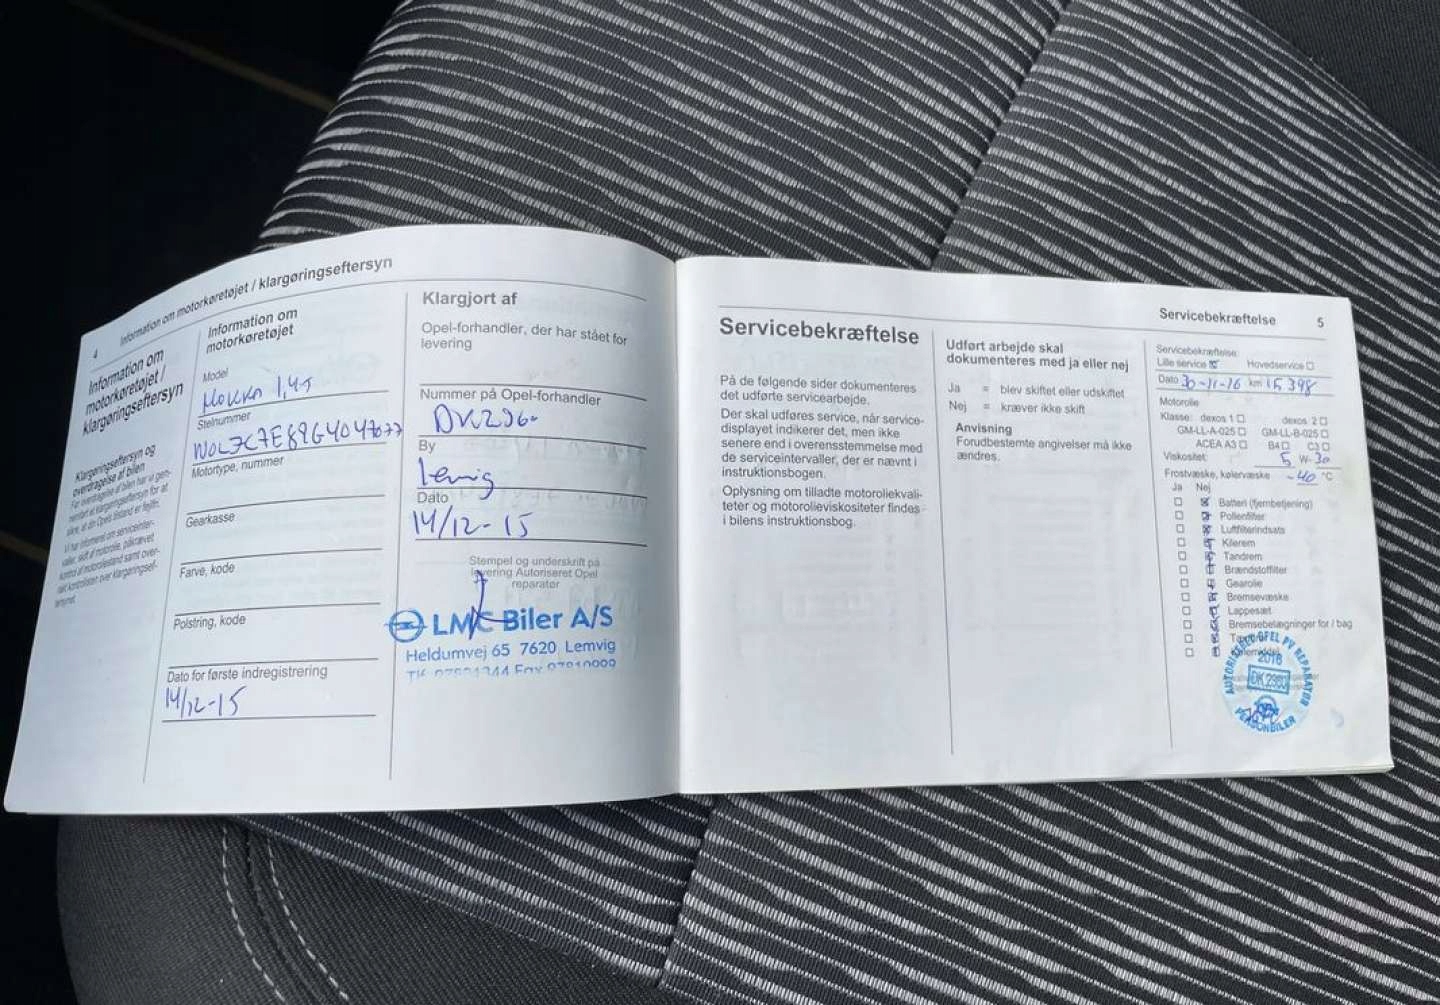 4 Information om motorkøretøjet / klargøringseftersyn
Information om
motorkøretøjet /
klargøringseftersyn
Klargøringseftersyn og
overdragelse af bilen
Information om
motorkøretøjet
Model
Mokka 1,4T
Stelnummer
Motortype, nummer
Gearkasse
Farve, kode
Polstring, kode
Dato for første indregistrering
14/12-15
Klargjort af
Opel-forhandler, der har stået for
levering
Nummer på Opel-forhandler
By
Lemvig
Dato
14/12-15
Stempel og underskrift på
levering Autoriseret Opel
reparatør
LMC Biler A/S
Heldumvej 65 7620 Lemvig
Servicebekræftelse 5
Servicebekræftelse
På de følgende sider dokumenteres
det udførte servicearbejde.
Der skal udføres service, når service-
displayet indikerer det, men ikke
senere end i overensstemmelse med
de serviceintervaller, der er nævnt i
instruktionsbogen.
Oplysning om tilladte motoroliekvali-
teter og motorolieviskositeter findes
i bilens instruktionsbog.
Udført arbejde skal
dokumenteres med ja eller nej
Ja = blev skiftet eller udskiftet
Nej = kræver ikke skift
Anvisning
Forudbestemte angivelser må ikke
ændres.
Servicebekræftelse:
Lille service Hovedservice
Dato 30-11-16 km 15.398
Motorolie
Klasse: dexos 1 dexos 2
GM-LL-A-025 GM-LL-B-025
ACEA A3 B4 C3
Viskositet: 5 W-30
Frostvæske, kølervæske -40 °C
Ja Nej
Batteri (fjernbetjening)
Pollenfilter
Luftfilterindsats
Kilerem
Tandrem
Brændstoffilter
Gearolie
Bremsevæske
Lappesæt
Bremsebelægninger for / bag
AUTORISERET OPEL PV REPARATØR
2016
DK 2983
PERSONBILER